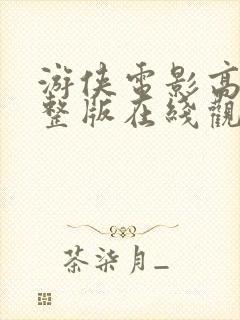 游侠电影高
整版在线觀
茶柒月_